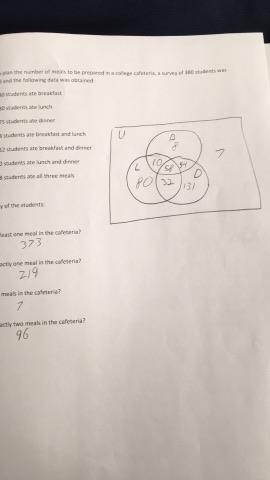 plan the number of meals to be prepared in a college cafeteria, a survey of 380 students was
and the following data was obtained:
students ate breakfast
students ate lunch
students ate dinner
students ate breakfast and lunch
students ate breakfast and dinner
students ate lunch and dinner
students ate all three meals
of the students:
least one meal in the cafeteria?
373
exactly one meal in the cafeteria?
219
meals in the cafeteria?
7
exactly two meals in the cafeteria?
96
U
8
7
L 10 58 54 D
80 32 131